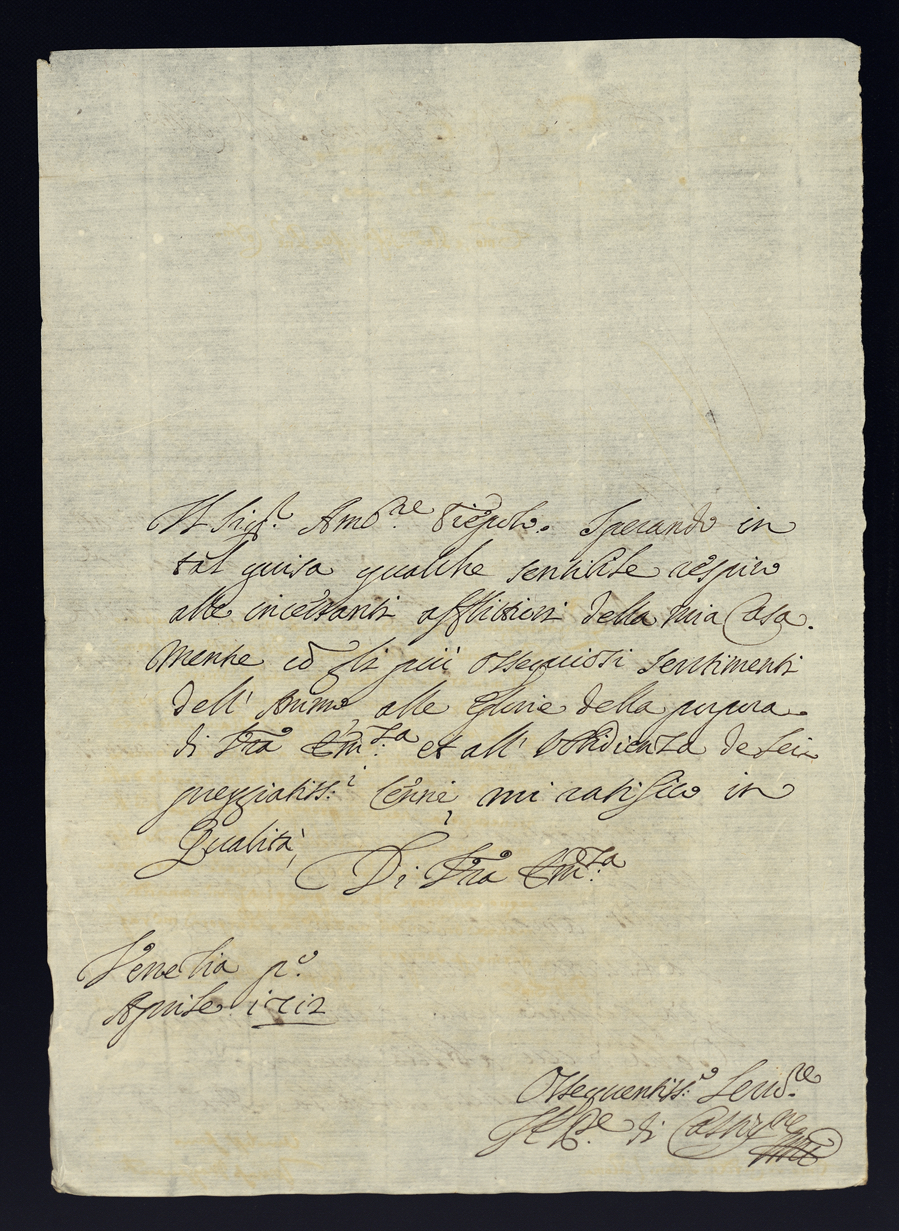 Il Sig.r Amb.re Tiepolo. Sperando in
tal guisa qualche sensibile respiro
alle incessanti afflitioni della mia Casa.
Mentre cõ gli più ossequiosi sentimenti
dell' Animo alle Glorie della porpora
di Vra Em.za et all' obbidienza de Lei
preggiatiss.i Cenni mi ratifico in
Qualità,
Di Vra Em.za
Venetia p.o
Aprile 1712
Ossequentiss.o Seru.re
di